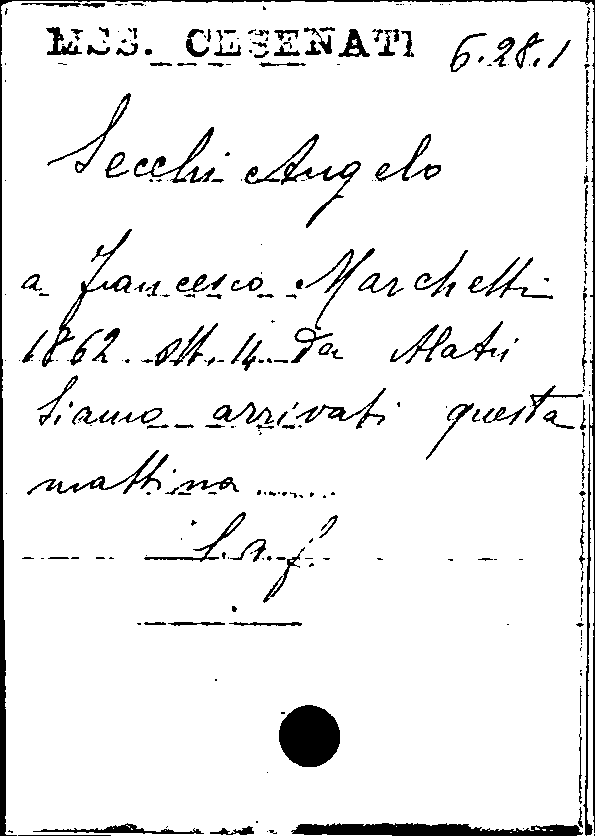 MSS. CESENATI 6.28.1
Secchi Angelo
a Francesco Marchetti
1862. ott. 14. da Alatri
Siamo arrivati questa
mattina .......
l. a. f.